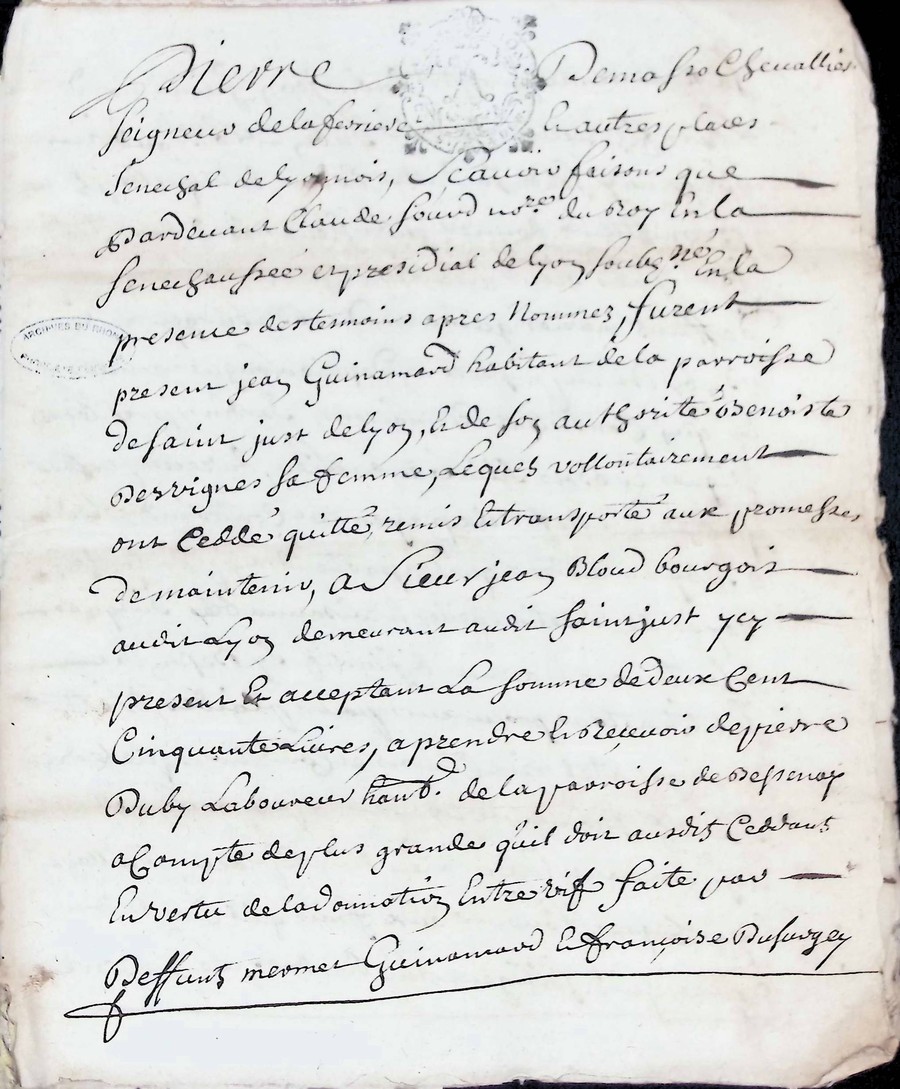 Pierre Demasso Chevallier
seigneur de la ferriere et autres places
senechal de lyonnois, Scavoir faisons que
Pardevant Claude Sourd no.re du Roy En la
senechaussée et presidial de lyon soubz.né En la
presence des tesmoins apres Nommez, furent
present jean Guinamard habitant de la parroisse
de saint just de lyon, et de son authorité Benoiste
Desvignes sa femme, Lequelz vollontairement
ont Ceddé quitté, remis et transporté aux promesses
de maintenir, a Sieur jean Bloud bourgois
audit Lyon demeurant audit saint just ycy
present Et acceptant La somme de deux Cent
Cinquante Livres, a prendre et Reçevoir de pierre
Duby Laboureur habt. de la parroisse de Bessenay
a Compte de plus grande qu'il doit ausditz Ceddans
En vertu de la donnation Entre vif faite par
Deffuntz mermet Guinamard et françoise Dusurgey
ARCHIVES DU RHONE